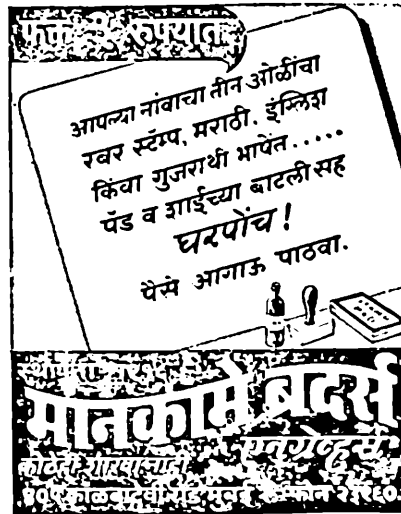 फक्त ३ रुपयात
आपल्या नांवाचा तीन ओळींचा
रबर स्टॅम्प, मराठी. इंग्लिश
किंवा गुजराथी भाषेंत.....
पॅड व शाईच्या बाटलीसह
घरपोंच!
पैसे आगाऊ पाठवा.
मानकामे ब्रदर्स
एनग्रेव्हर्स
कोठेही शाखा नाही
काळबादेवी रोड मुंबई २ फोन